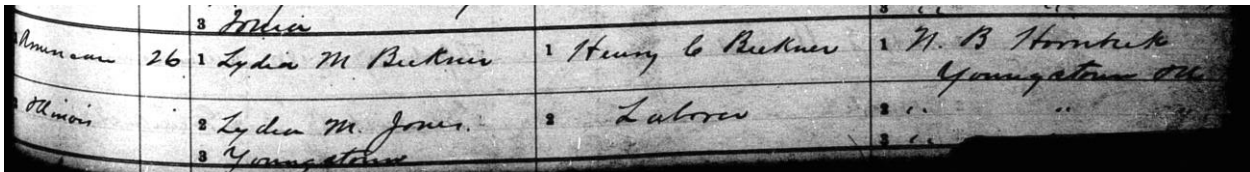 3
3 Ionia
American 26 1 Lydia M Beckner 1 Henry C Beckner 1 N. B Hornbeck
Youngstown Ills
2 Illinois 2 Lydia M. Jones. 2 Laborer 2 " " "
3 Youngstown 3 "